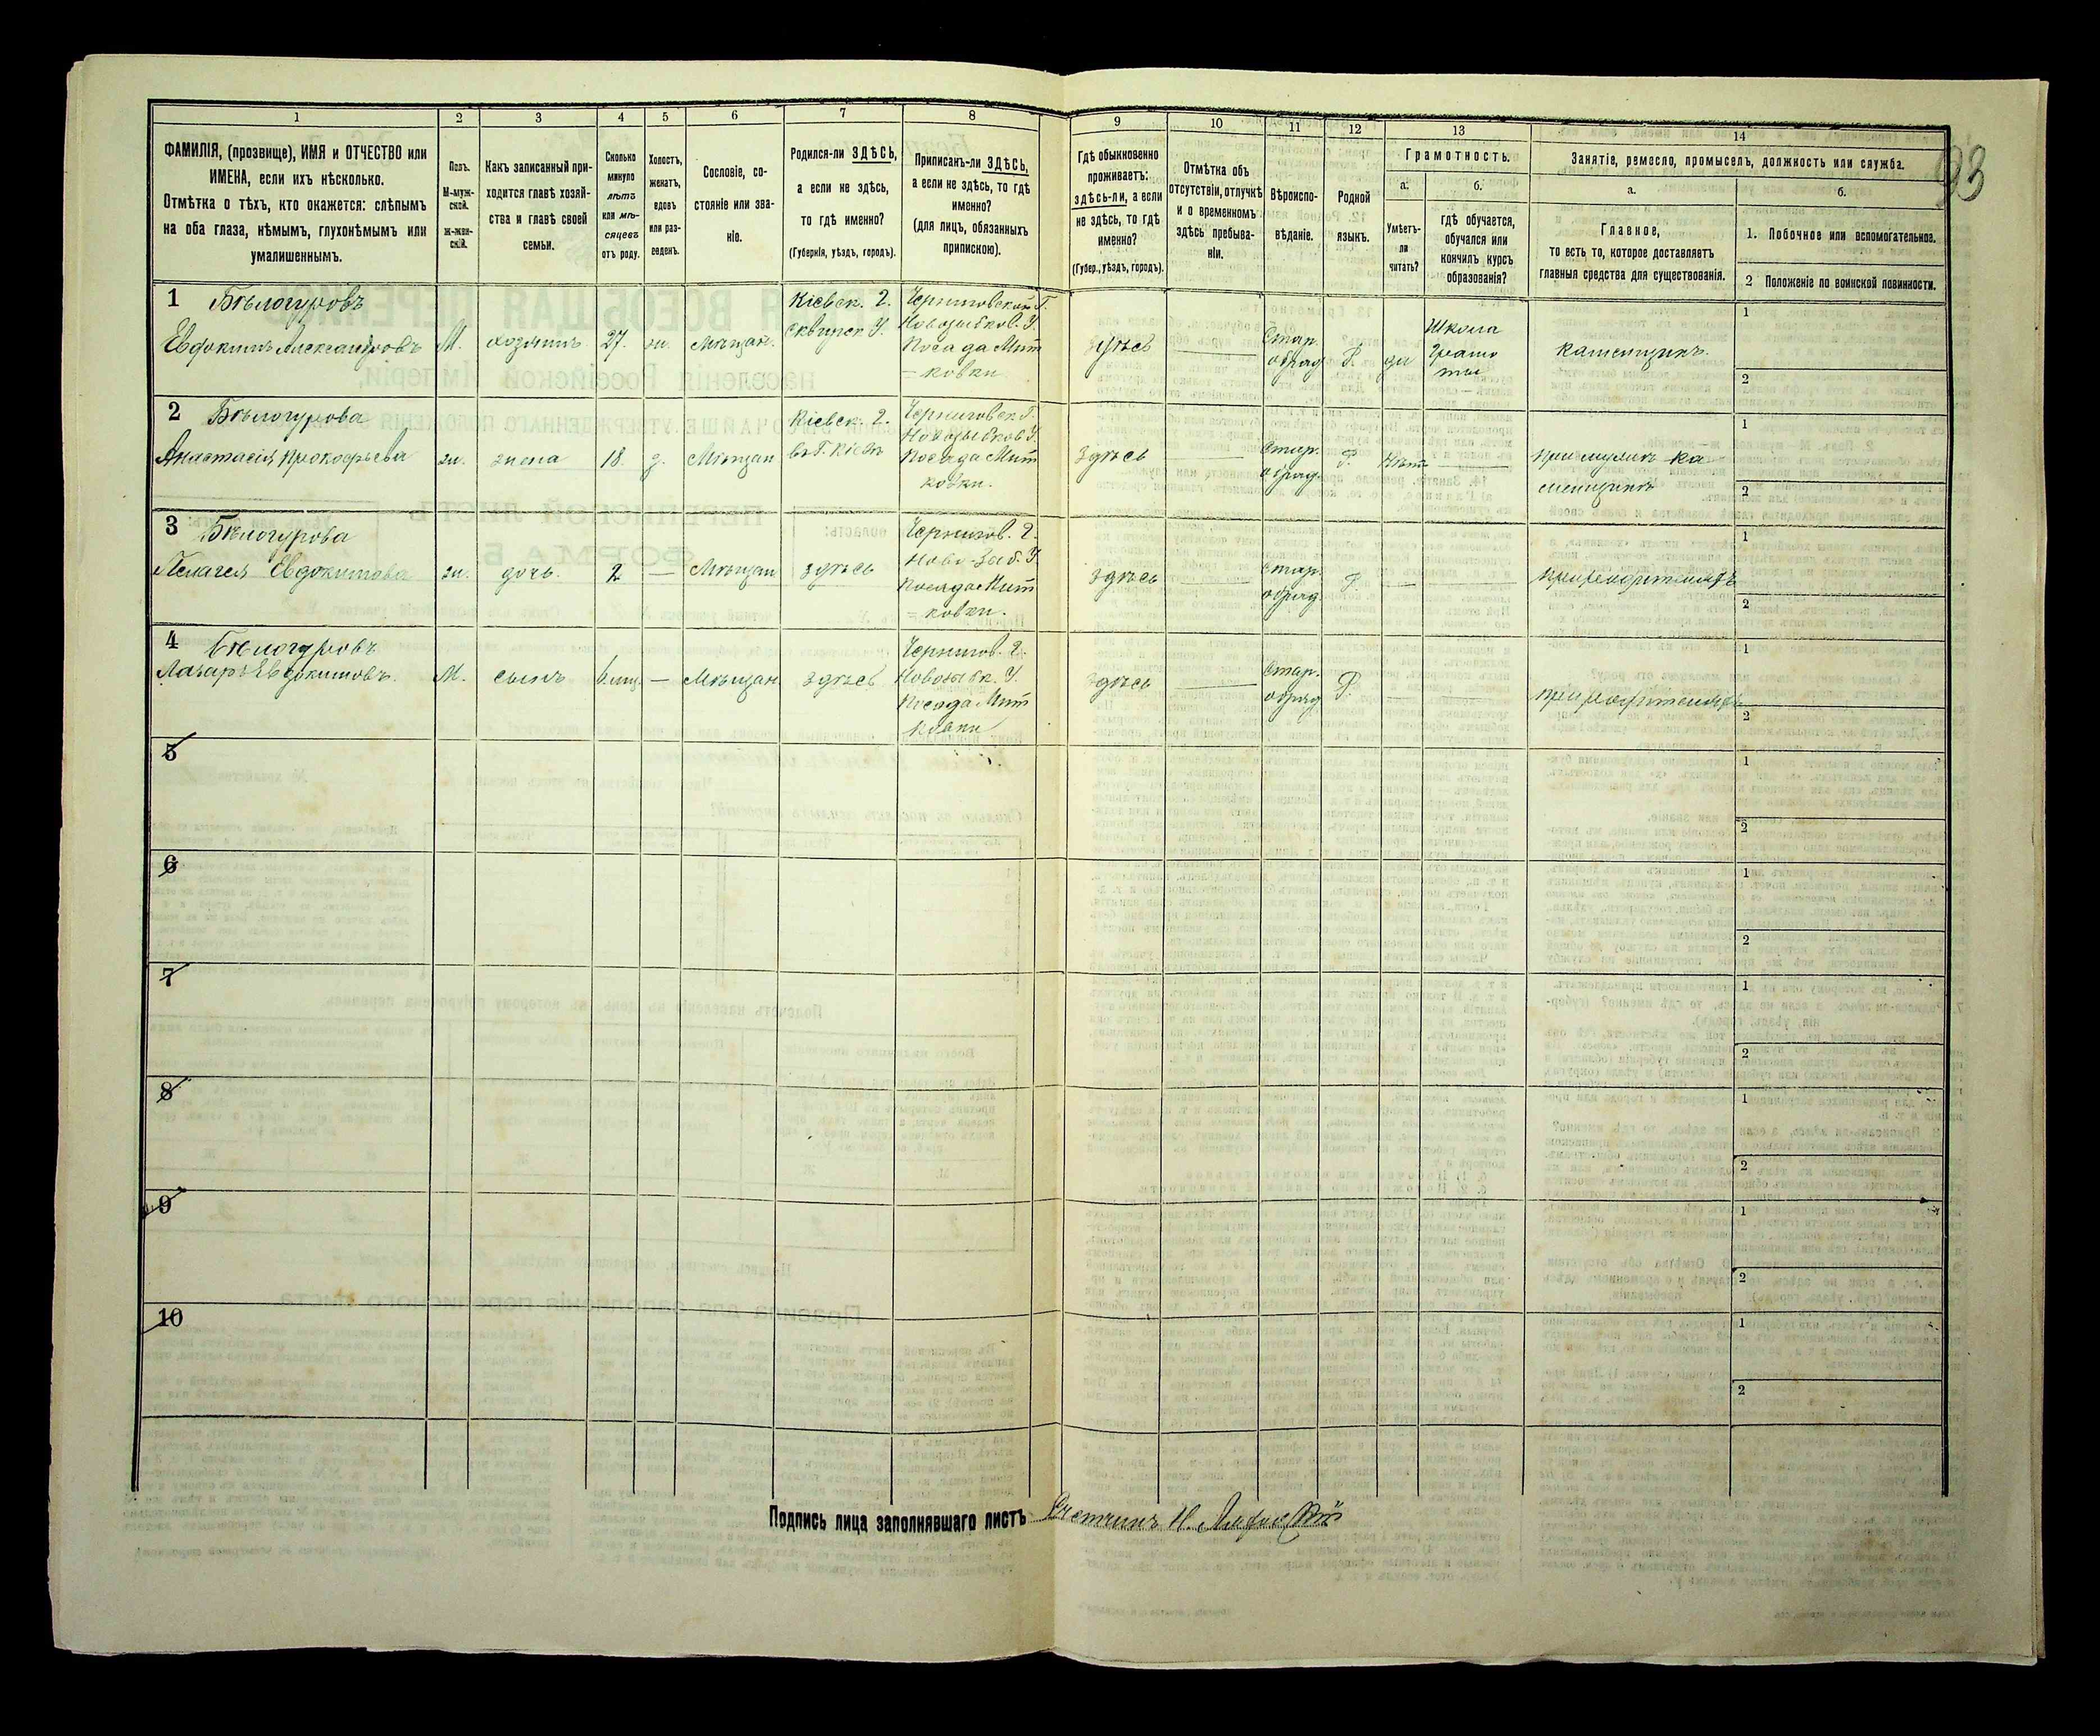 1 2 3 4 5 6 7 8 9 10 11 12 13 14
93
ФАМИЛІЯ, (прозвище), ИМЯ и ОТЧЕСТВО или
ИМЕНА, если ихъ нѣсколько.
Отмѣтка о тѣхъ, кто окажется: слѣпымъ
на оба глаза, нѣмымъ, глухонѣмымъ или
умалишеннымъ.
Полъ.
М-муж-
ской.
Ж-жен-
скій.
Какъ записанный при-
ходится главѣ хозяй-
ства и главѣ своей
семьи.
Сколько
минуло
лѣтъ
или мѣ-
сяцевъ
отъ роду.
Холостъ,
женатъ,
вдовъ
или раз-
веденъ.
Сословіе, со-
стояніе или зва-
ніе.
Родился-ли ЗДѢСЬ,
а если не здѣсь,
то гдѣ именно?
(Губернія, уѣздъ, городъ).
Приписанъ-ли ЗДѢСЬ,
а если не здѣсь, то гдѣ
именно?
(для лицъ, обязанныхъ
припискою).
Гдѣ обыкновенно
проживаетъ:
здѣсь-ли, а если
не здѣсь, то гдѣ
именно?
(Губер., уѣздъ, городъ).
Отмѣтка объ
отсутствіи, отлучкѣ
и о временномъ
здѣсь пребыва-
ніи.
Вѣроиспо-
вѣданіе.
Родной
языкъ.
Грамотность.
а.
Умѣетъ-
ли
читать?
б.
гдѣ обучается,
обучался или
кончилъ курсъ
образованія?
Занятіе, ремесло, промыселъ, должность или служба.
а.
Главное,
то есть то, которое доставляетъ
главныя средства для существованія.
б.
1. Побочное или вспомогательное.
2 Положеніе по воинской повинности.
1 Бѣлогуровъ
Евдокимъ Александровъ
М.
хозяинъ
27.
ж.
Мѣщан.
Кіевск. г.
Сквирск У.
Черниговской Г.
Новозыбков. У.
Посада Мит
= ковки
здѣсь
Стар.
обряд.
Р.
да
Школа
грамо
ты
каменщикъ.
1
2
2 Бѣлогурова
Анастасія Прокофьева
ж.
жена
18.
з.
Мѣщан
Кіевск. г.
въ Г. Кіевѣ
Черниговск. Г.
Новозыбков У.
Посада Мит
ковки.
здѣсь
Стар.
обряд.
Р.
Нѣтъ
При мужѣ ка
менщикѣ
1
2
3 Бѣлогурова
Пелагея Евдокимова
ж.
дочь.
2
—
Мѣщан
здѣсь
Чернигов. г.
Ново-Зыб. У.
Посада Мит
= ковки.
здѣсь
Стар.
обряд.
Р.
—
при родителяхъ
1
2
4 Бѣлогуровъ
Лазарь Евдокимовъ.
М.
сынъ
6 мц.
—
Мѣщан.
здѣсь
Чернигов. г.
Новозыбк. У.
Посада Мит
ковки
здѣсь
Стар.
обряд
Р.
—
при родителяхъ
1
2
5
1
2
6
1
2
7
1
2
8
1
2
9
1
2
10
1
2
Подпись лица заполнявшаго листъ Счетчикъ Н.